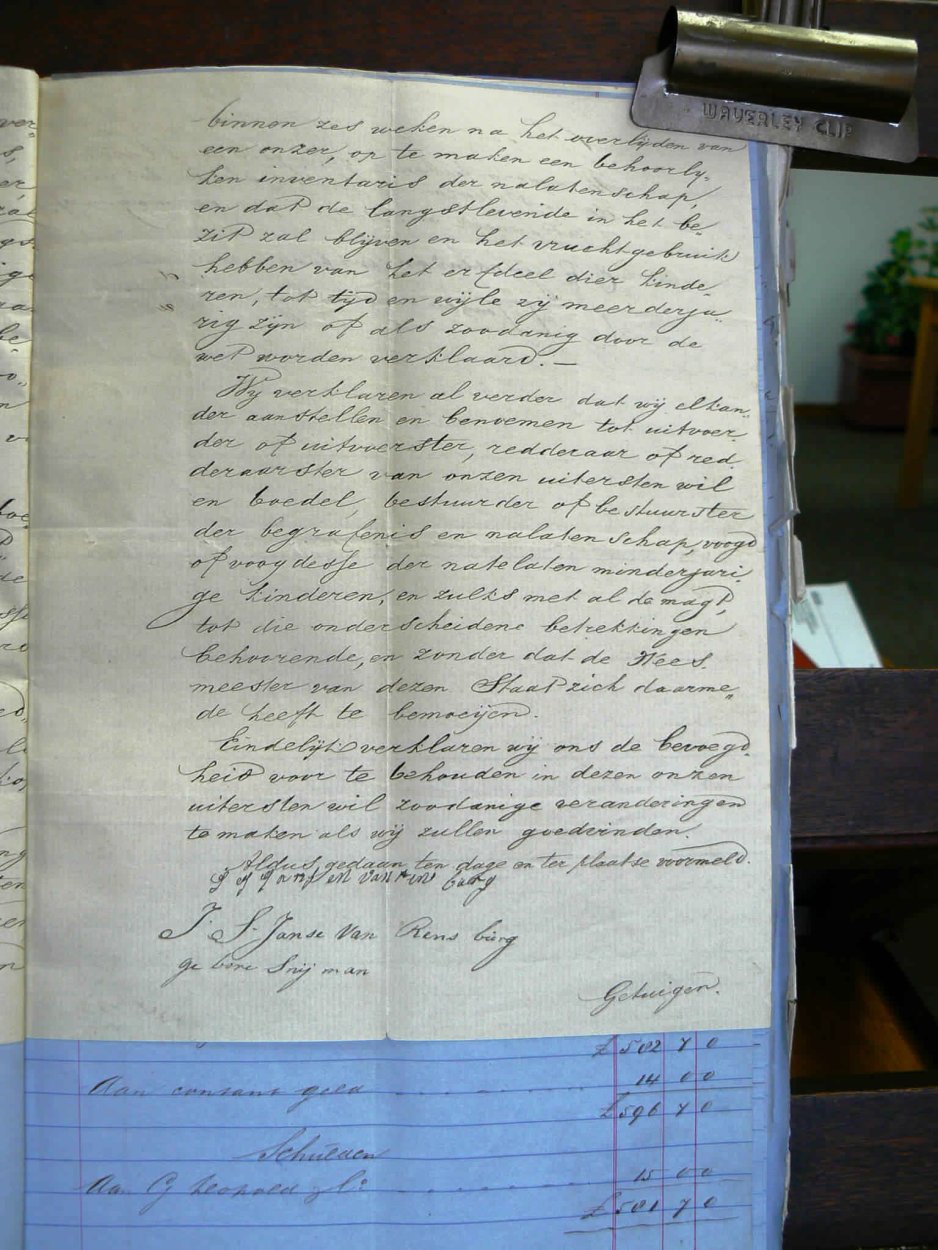 WAVERLEY CLIP
binnen zes weken na het overlijden van
een onzer, op te maken een behoorly-
ken inventaris der nalatenschap,
en dat de langstlevende in het be-
zit zal blijven en het vruchtgebruik
hebben van het erfdeel dier kinde-
ren, tot tijd en wijle zij meerderja-
rig zijn of als zoodanig door de
wet worden verklaard. —
Wij verklaren al verder dat wij elkan-
der aanstellen en benoemen tot uitvoer-
der of uitvoerster, redderaar of red-
deraarster van onzen uitersten wil
en boedel, bestuurder of bestuurster
der begrafenis en nalatenschap, voogd
of voogdesse der natelaten minderjari-
ge kinderen, en zulks met al de magt,
tot die onderscheidene betrekkingen
behoorende, en zonder dat de Wees
meester van dezen Staat zich daarme„
de heeft te bemoeijen.
Eindelijk verklaren wij ons de bevoegd-
heid voor te behouden in dezen onzen
uitersten wil zoodanige veranderingen
te maken als wij zullen goedvinden.
Aldus gedaan ten dage en ter plaatse voormeld.
J. S. Janse Van Rens burg
ge bore Snij man
Getuigen.
Aan contant geld
14 0 0
£596 7 0
Schulden
Aan G Leopold
15 0 0
£581 7 0